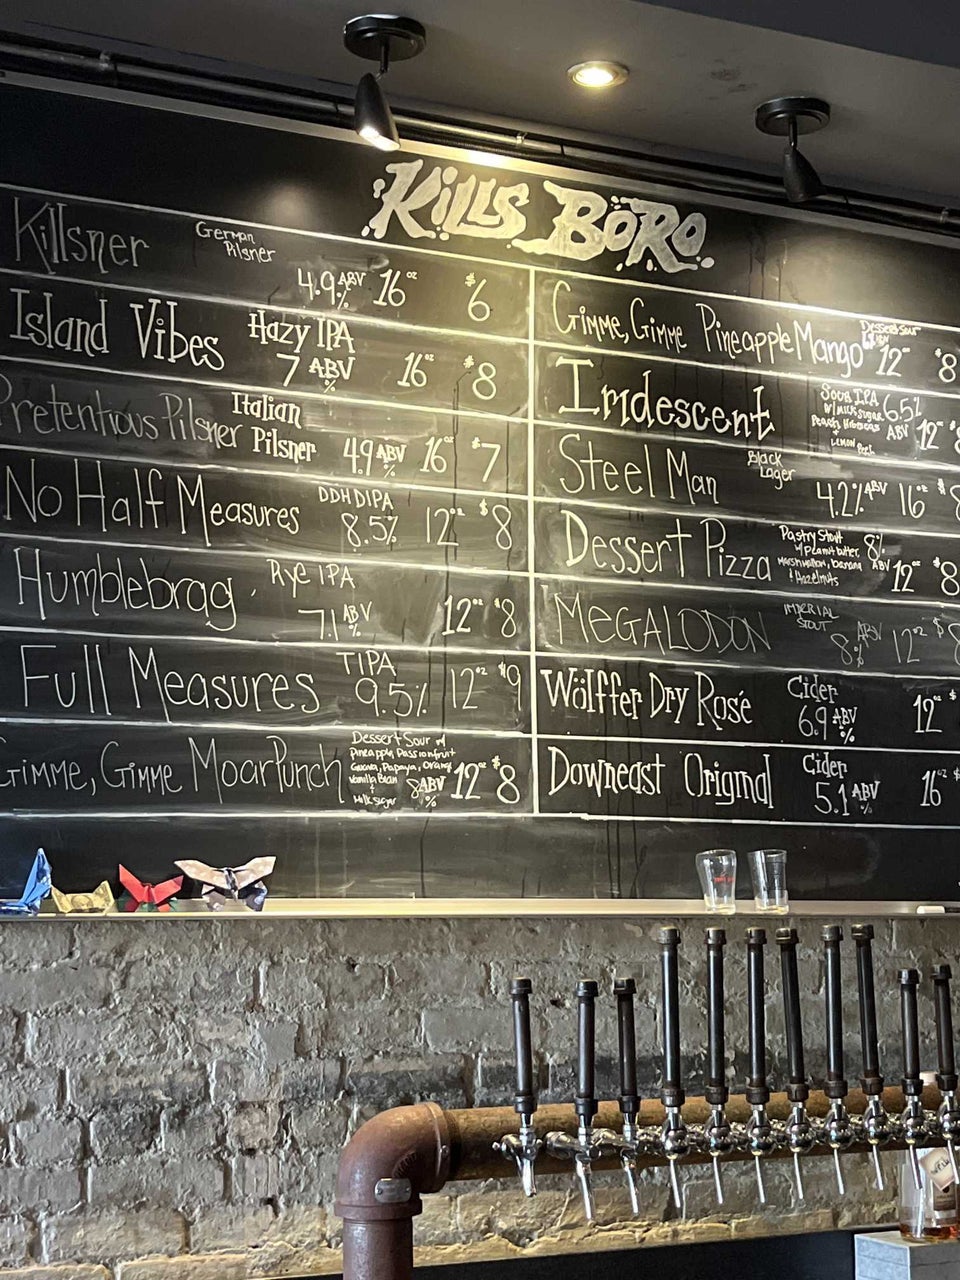 KILLS BORO
Killsner German Pilsner 4.9% ABV 16oz $6
Island Vibes Hazy IPA 7% ABV 16oz $8
Pretentious Pilsner Italian Pilsner 4.9% ABV 16oz $7
No Half Measures DDH DIPA 8.5% 12oz $8
Humblebrag Rye IPA 7.1% ABV 12oz $8
Full Measures TIPA 9.5% 12oz $9
Gimme, Gimme MoarPunch Dessert Sour w/ Pineapple, Passionfruit Guava, Papaya, Orange Vanilla Bean + Milk Sugar 8% ABV 12oz $8
Gimme, Gimme Pineapple Mango Dessert Sour 12oz $8
Iridescent Sour IPA w/ Milk Sugar Peach, Hibiscus + Lemon Peel 6.5% ABV 12oz
Steel Man Black Lager 4.2% ABV 16oz $8
Dessert Pizza Pastry Stout w/ Peanut butter, Marshmallow, banana + Hazelnuts 8% ABV 12oz $8
MEGALODON IMPERIAL STOUT 8% ABV 12oz $8
Wölffer Dry Rosé Cider 6.9% ABV 12oz $
Downeast Original Cider 5.1% ABV 16oz $